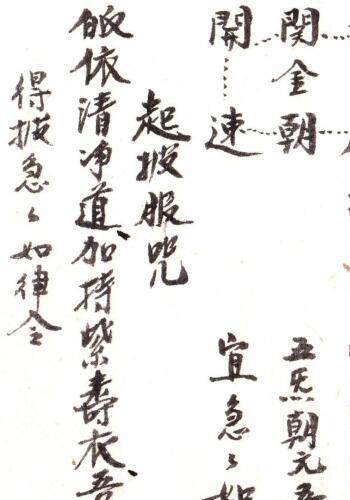 関金朝 五炁朝元
開速 宜急々如
起披服咒
皈依清净道、加持紫壽衣、吾
得披急々如律令